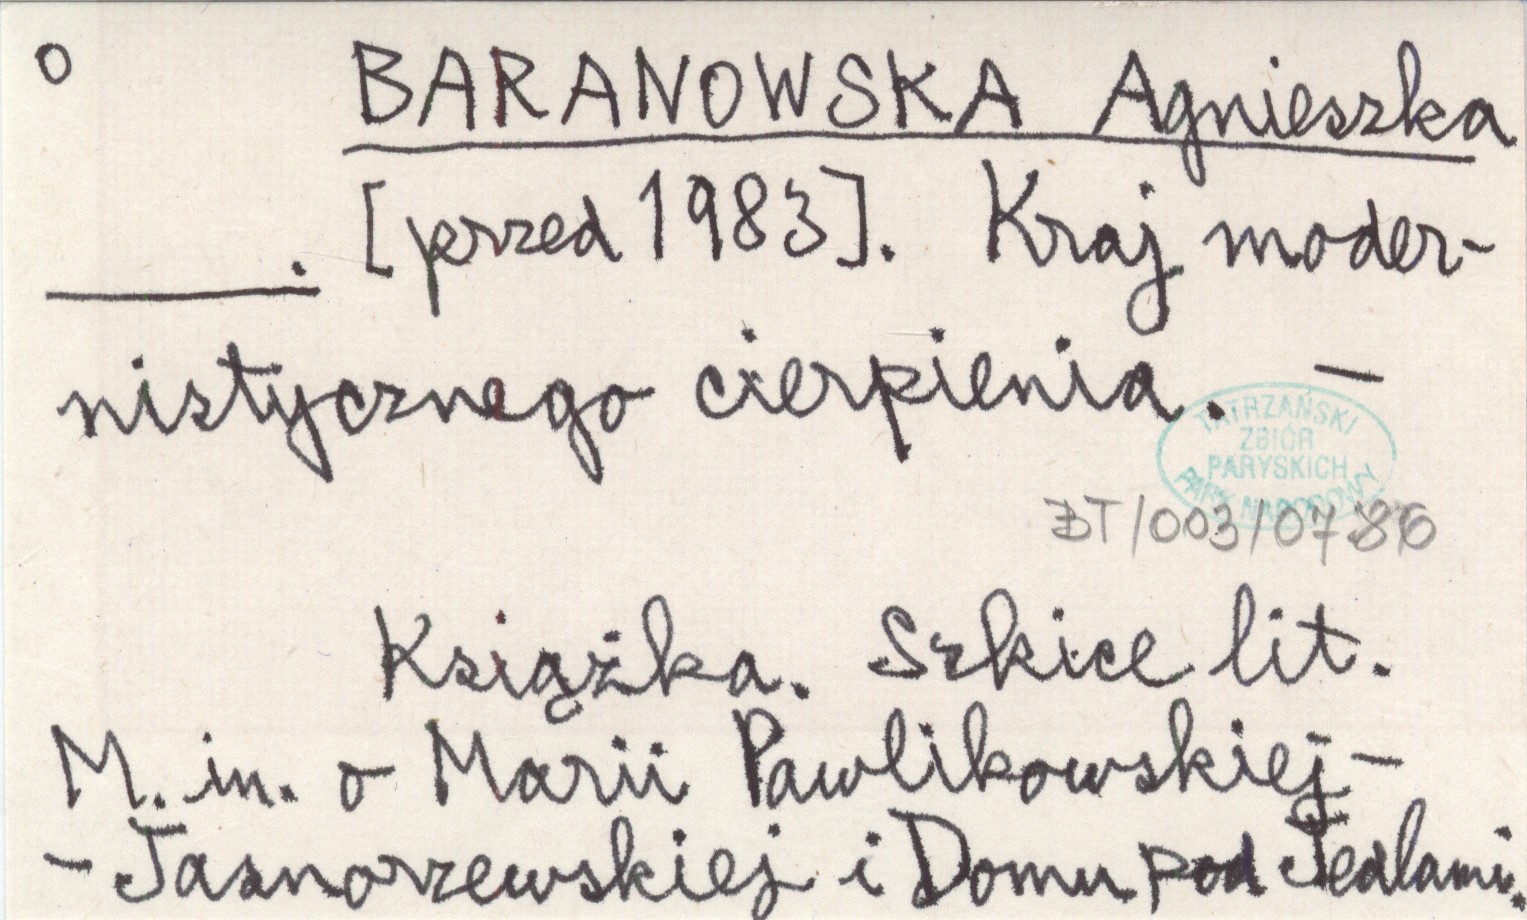 o BARANOWSKA Agnieszka
. [przed 1983]. Kraj moder-
nistycznego cierpienia. –
TATRZAŃSKI
ZBIÓR
PARYSKICH
PARK NARODOWY
ZBT/003/0786
Książka. Szkice lit.
M. in. o Marii Pawlikowskiej-
-Jasnorzewskiej i Domu pod Jedlami.